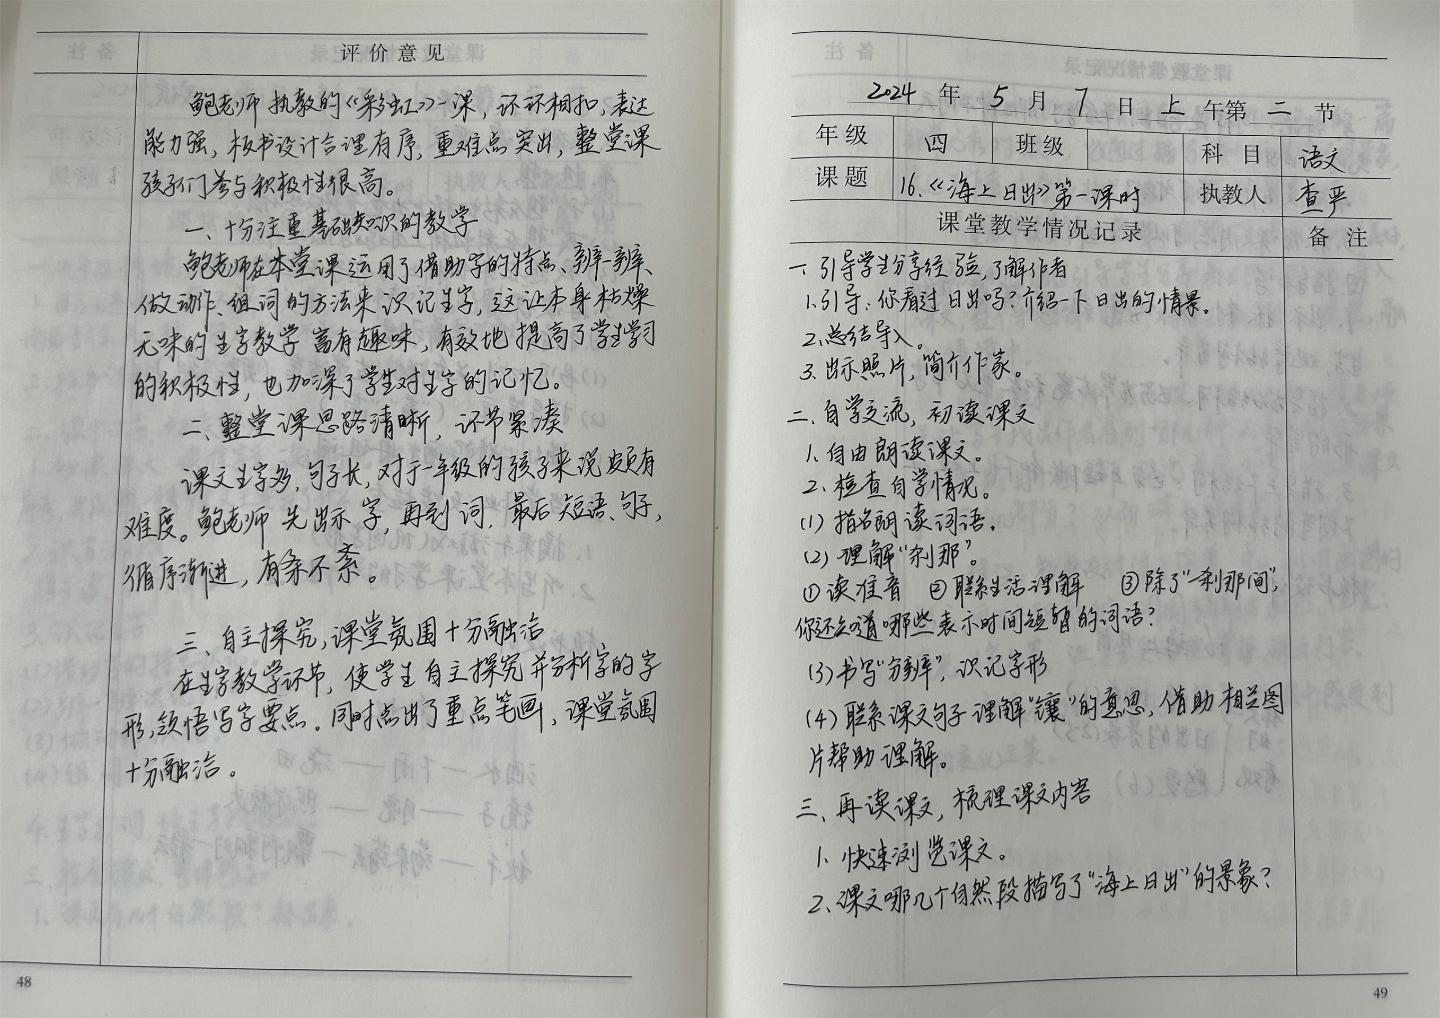 备 注
评 价 意 见
鲍老师执教的《彩虹》一课，环环相扣，表达
能力强，板书设计合理有序，重难点突出，整堂课
孩子们参与积极性很高。
一、十分注重基础知识的教学
鲍老师在本堂课运用了借助字的特点、辨一辨、
做动作、组词的方法来识记生字，这让本身枯燥
无味的生字教学富有趣味，有效地提高了学生学习
的积极性，也加深了学生对生字的记忆。
二、整堂课思路清晰，环节紧凑
课文生字多，句子长，对于一年级的孩子来说颇有
难度。鲍老师先出示字，再到词，最后短语、句子，
循序渐进，有条不紊。
三、自主探究，课堂氛围十分融洽
在生字教学环节，使学生自主探究并分析字的字
形，领悟写字要点。同时点出了重点笔画，课堂氛围
十分融洽。
48
2024 年 5 月 7 日 上 午第 二 节
年 级 四 班 级 科 目 语文
课 题 16.《海上日出》第一课时 执教人 查严
课堂教学情况记录 备 注
一、引导学生分享经验，了解作者
1.引导：你看过日出吗？介绍一下日出的情景。
2.总结导入。
3.出示照片，简介作家。
二、自学交流，初读课文
1.自由朗读课文。
2.检查自学情况。
(1)指名朗读词语。
(2)理解“刹那”。
①读准音 ②联系生活理解 ③除了“一刹那间”，
你还知道哪些表示时间短暂的词语？
(3)书写“分辨”，识记字形
(4)联系课文句子理解“镶”的意思，借助相关图
片帮助理解。
三、再读课文，梳理课文内容
1.快速浏览课文。
2.课文哪几个自然段描写了“海上日出”的景象？
49